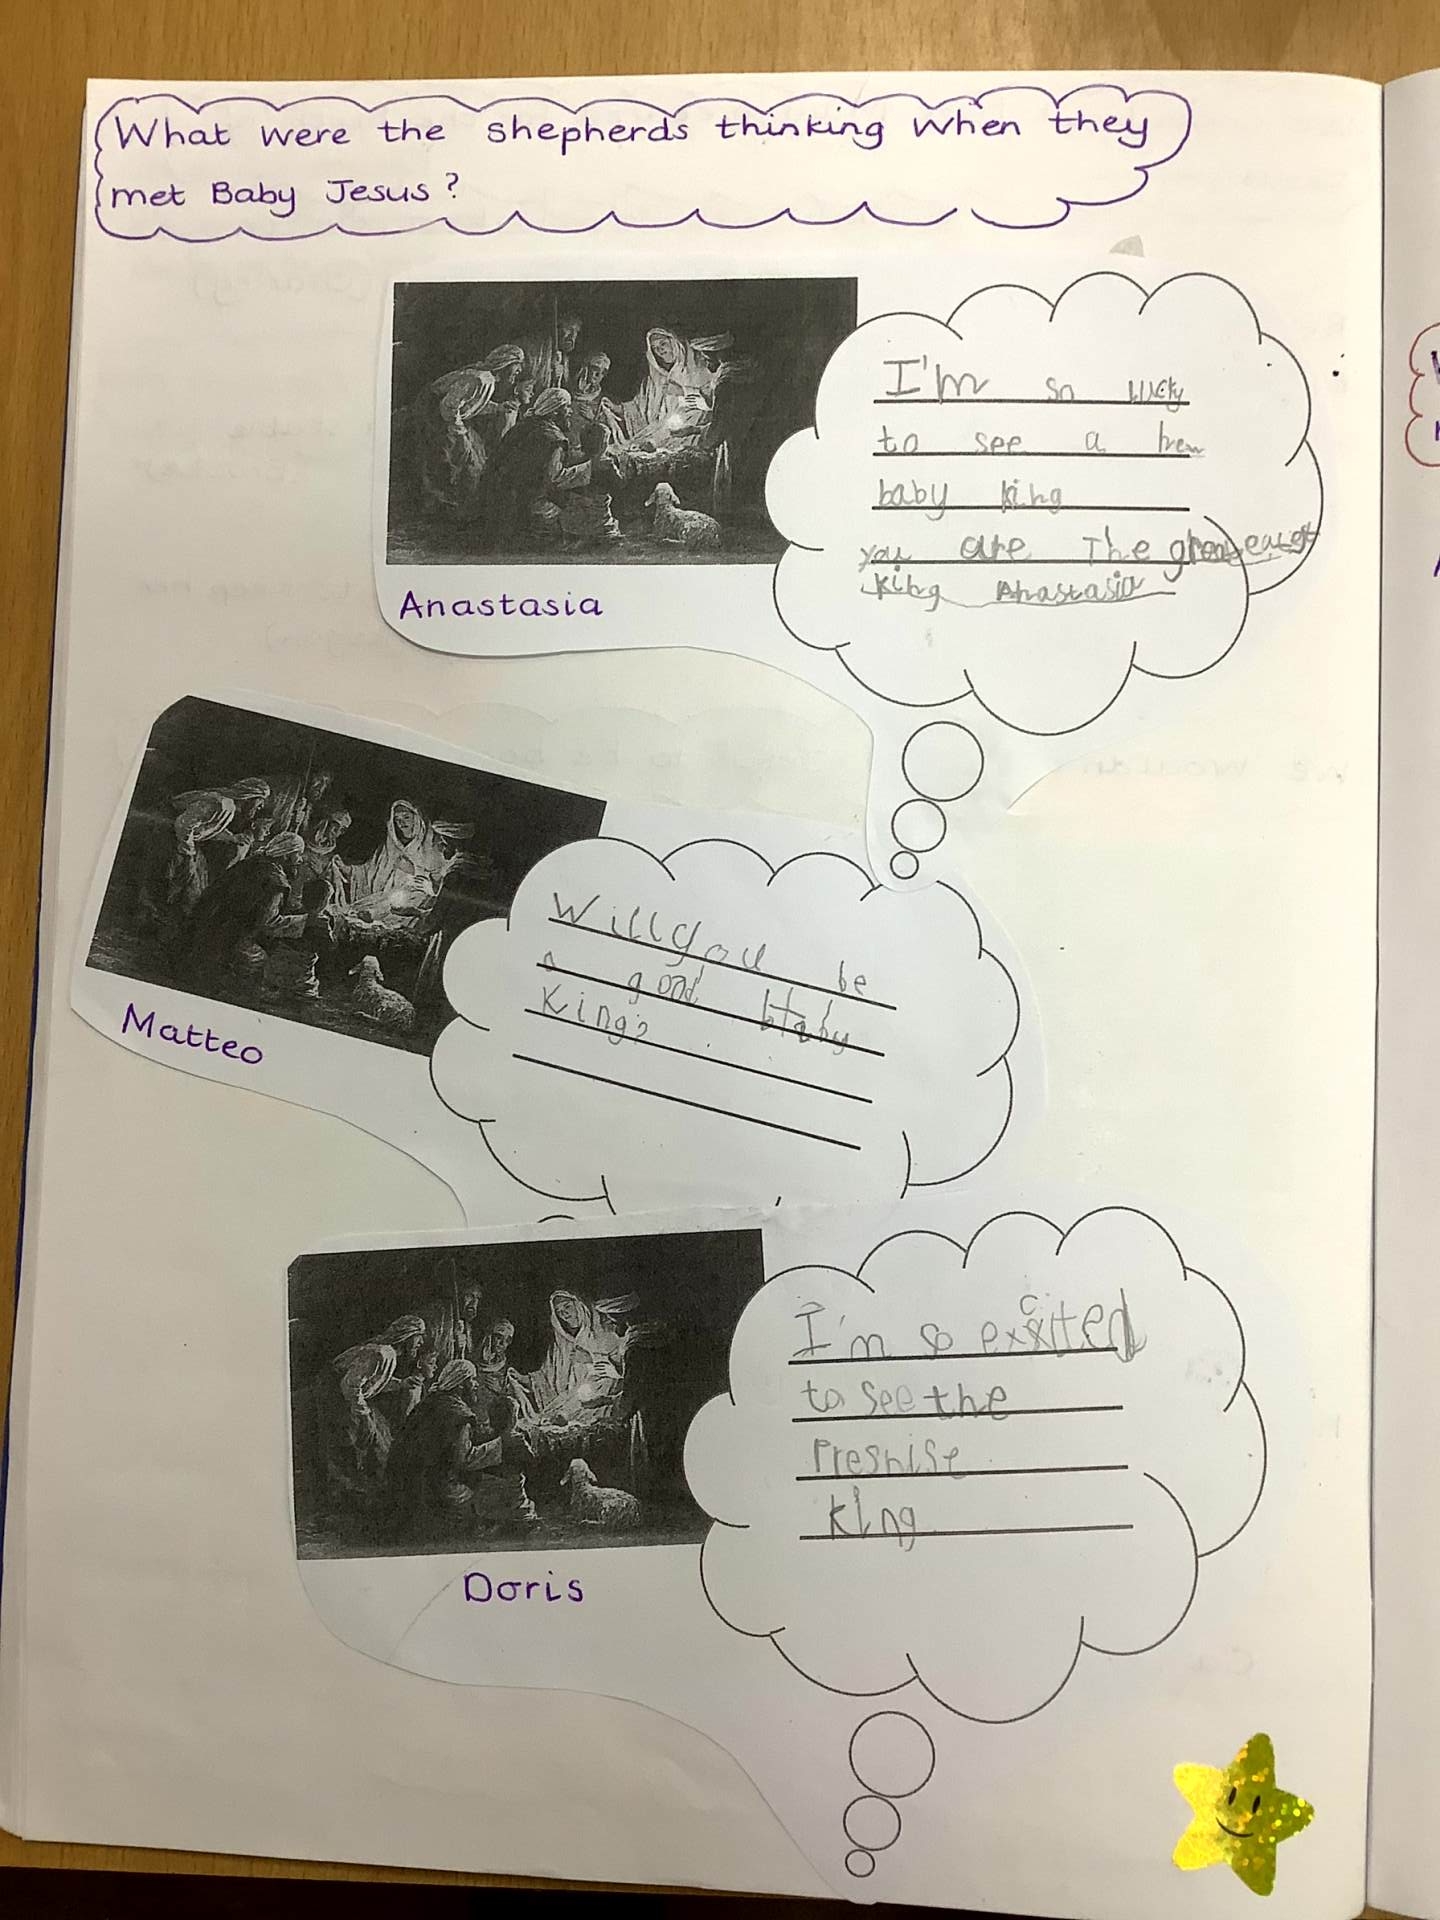 What were the shepherds thinking when they
met Baby Jesus?
I'm so lucky
to see a new
baby king
you are The greateast
king Anastasia
Anastasia
Will you be
a good baby
King?
Matteo
I'm so excited
to see the
Presnise
king
Doris